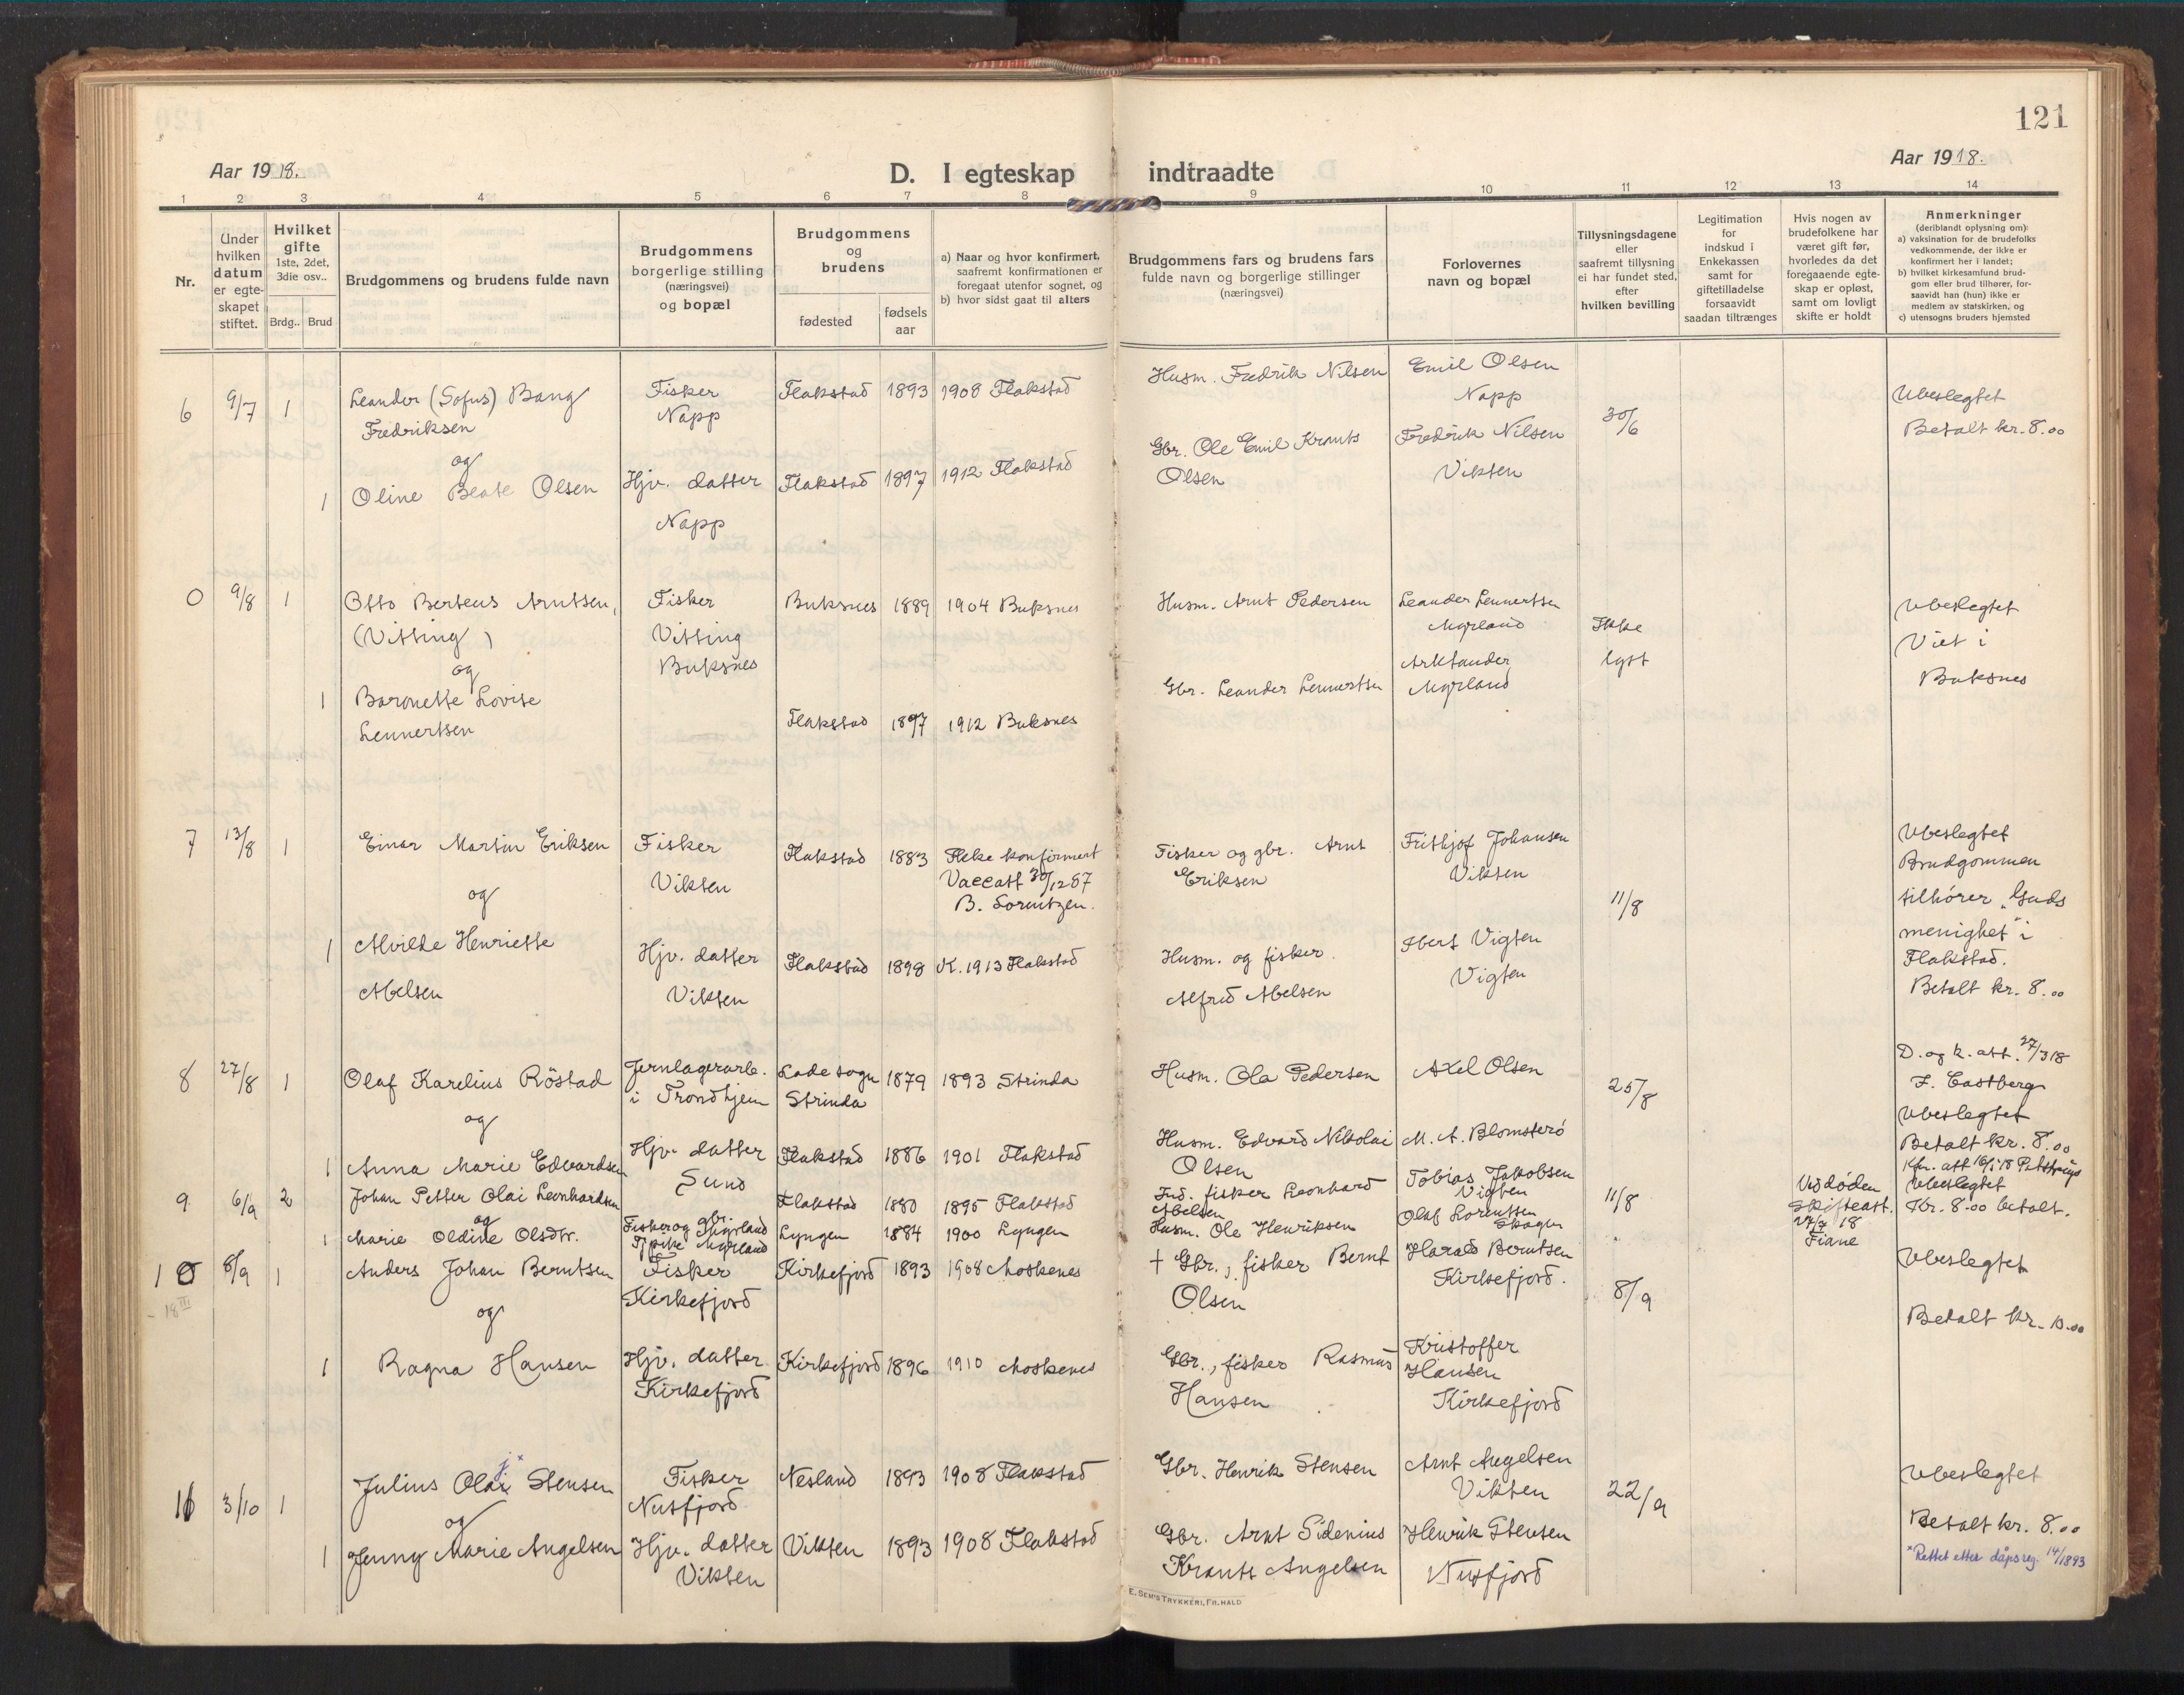 121
Aar 1918.
D. I egteskap indtraadte
Aar 1918.
1 2 3 4 5 6 7 8 9 10 11 12 13 14
Nr.
Under hvilken datum er egte-skapet stiftet.
Hvilket gifte 1ste, 2det, 3die osv..
Brdg.. Brud
Brudgommens og brudens fulde navn
Brudgommens borgerlige stilling (næringsvei) og bopæl
Brudgommens og brudens
fødested
fødsels aar
a) Naar og hvor konfirmert, saafremt konfirmationen er foregaat utenfor sognet, og
b) hvor sidst gaat til alters
Brudgommens fars og brudens fars fulde navn og borgerlige stillinger (næringsvei)
Forlovernes navn og bopæl
Tillysningsdagene eller saafremt tillysning ei har fundet sted, efter hvilken bevilling
Legitimation for indskud i Enkekassen samt for giftetilladelse forsaavidt saadan tiltrænges
Hvis nogen av brudefolkene har været gift før, hvorledes da det foregaaende egte-skap er opløst, samt om lovligt skifte er holdt
Anmerkninger (deriblandt oplysning om):
a) vaksination for de brudefolks vedkommende, der ikke er konfirmert her i landet;
b) hvilket kirkesamfund brud-gom eller brud tilhører, for-saavidt han (hun) ikke er medlem av statskirken, og
c) utensogns bruders hjemsted
6 9/7 1 Leander (Sofus) Bang Fredriksen
Fisker Napp
Flakstad 1893 1908 Flakstad
Husm. Fredrik Nilsen
Emil Olsen Napp
30/6
Ubeslegtet
Betalt kr. 8.00
og
1 Oline Beate Olsen
Hjv. datter Napp
Flakstad 1897 1912 Flakstad
Gbr. Ole Emil Krants Olsen
Fredrik Nilsen Vikten
0 9/8 1 Otto Berteus Arntsen, (Vitting)
Fisker Vitting Buksnes
Buksnes 1889 1904 Buksnes
Husm. Arnt Pedersen
Leander Lennertsen Myrland
Ikke lyst
Ubeslegtet
Viet i Buksnes
og
1 Baronette Lovise Lennertsen
Flakstad 1897 1912 Buksnes
Gbr. Leander Lennertsen
Arktander Myrland
7 13/8 1 Einar Martin Eriksen
Fisker Vikten
Flakstad 1883 Ikke konfirmert
Vaccatt 30/12 87
B. Lorentzen.
Fisker og gbr. Arnt Eriksen
Frithjof Johansen Vikten
11/8
Ubeslegtet
Brudgommen tilhører "Guds menighet" i Flakstad.
Betalt kr. 8.00
og
1 Alvilde Henriette Abelsen
Hjv. datter Vikten
Flakstad 1898 K. 1913 Flakstad
Husm. og fisker Alfred Abelsen
Ibert Vigten Vigten
8 27/8 1 Olaf Karelius Röstad
Jernlagerarb. i Trondhjem
Lade sogn Strinda 1879 1893 Strinda
Husm. Ola Pedersen
Axel Olsen
25/8
D. og k. att. 27/3 18
F. Castberg
Ubeslegtet
Betalt kr. 8.00
og
1 Anna Marie Edvardsen
Hjv. datter Sund
Flakstad 1886 1901 Flakstad
Husm. Edvard Nikolai Olsen
M. A. Blomsterö
9 6/9 2 Johan Petter Olai Leonhardsen
Fisker og gbr. Myrland
Flakstad 1880 1895 Flakstad
Ind. fisker Leonhard Abelsen
Tobias Jakobsen Vigten
11/8
Ved döden
Skifteatt. 27/7 18
Fiane
Ubeslegtet
Kr. 8.00 betalt.
og
1 Marie Oldine Olsdtr.
Tjpike Myrland
Lyngen 1884 1900 Lyngen
Husm. Ole Henriksen
Olaf Lorentsen Skagen
10 8/9 1 Anders Johan Berntsen
18 III
Fisker Kirkefjord
Kirkefjord 1893 1908 Moskenes
† Gbr., fisker Bernt Olsen
Harald Berntsen Kirkefjord.
8/9
Ubeslegtet
Betalt kr. 10.00
og
1 Ragna Hansen
Hjv. datter Kirkefjord
Kirkefjord 1896 1910 Moskenes
Gbr., fisker Rasmus Hansen
Kristoffer Hansen Kirkefjord
11 3/10 1 Julius Olai Stensen
Fisker Nusfjord
Nesland 1893 1908 Flakstad
Gbr. Henrik Stensen
Arnt Angelsen Vikten
22/9
Ubeslegtet
Betalt kr. 8.00
× Rettet etter dåpsreg. 14/1893
og
1 Jenny Marie Angelsen
Hjv. datter Vikten
Vikten 1893 1908 Flakstad
Gbr. Arnt Sidenius Krants Angelsen
Henrik Stensen Nusfjord
E. SEM'S TRYKKERI, FR.HALD